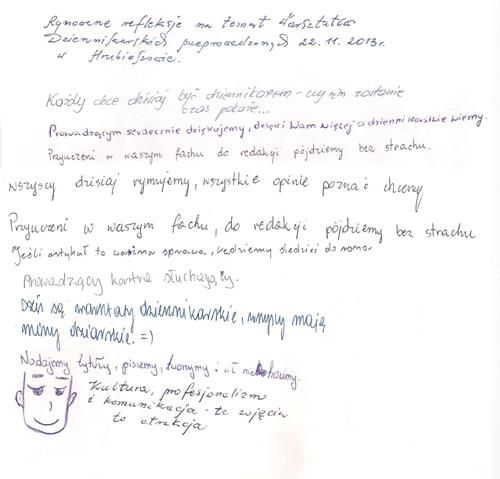 Rymowane refleksje na temat Warsztatów
Dziennikarskich przeprowadzonych 22.11.2013r.
w Hrubieszowie.
Każdy chce dzisiaj być dziennikarzem - czy nim zostanie
czas pokaże...
Prowadzącym serdecznie dziękujemy, dzięki Wam więcej o dziennikarstwie wiemy.
Przyuczeni w waszym fachu do redakcji pójdziemy bez strachu.
Wszyscy dzisiaj rymujemy, wszystkie opinie poznać chcemy
Przyuczeni w waszym fachu, do redakcji pójdziemy bez strachu
Jeśli artykuł to ważna sprawa, będziemy siedzieć do rana
Prowadzący kontra słuchający.
Dziś są warsztaty dziennikarskie, wszyscy mają
miny dziarskie. =)
Nadajemy tytuły, piszemy, tworzymy i nie
Kultura, profesjonalizm
i komunikacja - te zajęcia
to atrakcja